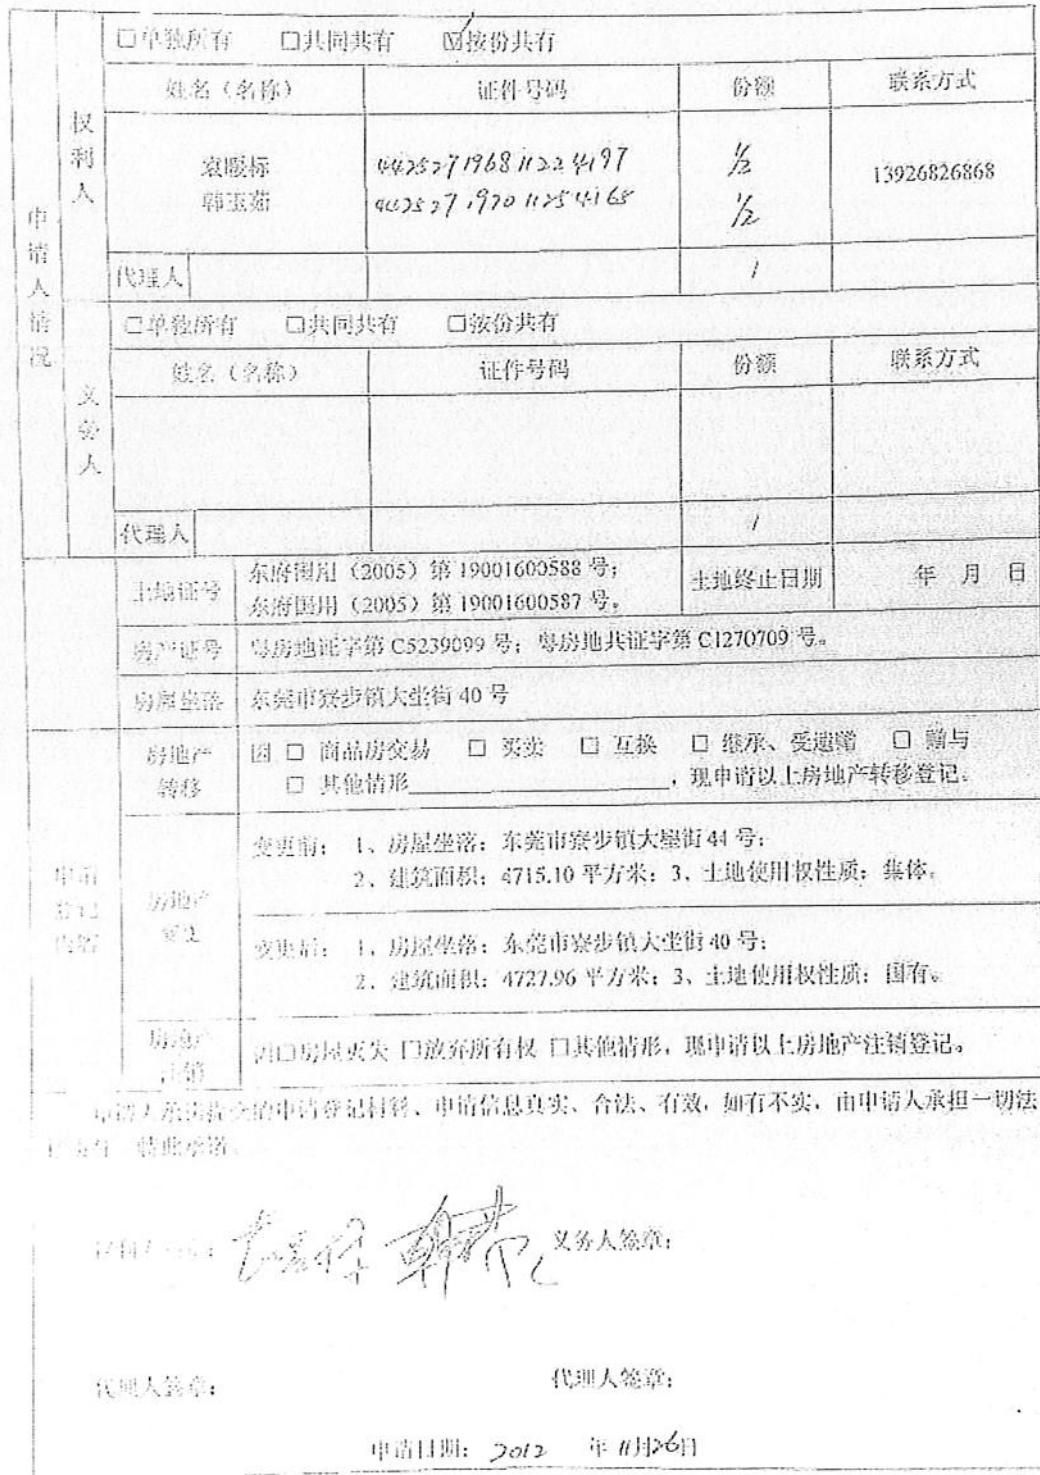 □单独所有 □共同共有 ☑按份共有
申请人情况
权利人
姓名（名称） 证件号码 份额 联系方式
袁暖标 442527196811224197 1/2 13926826868
韩玉茹 442527197011254165 1/2
代理人 /
□单独所有 □共同共有 □按份共有
义务人
姓名（名称） 证件号码 份额 联系方式
代理人 /
土地证号 东府国用（2005）第 19001600588 号； 土地终止日期 年 月 日
东府国用（2005）第 19001600587 号。
房产证号 粤房地证字第 C5239099 号；粤房地共证字第 C1270709 号。
房屋坐落 东莞市寮步镇大坣街 40 号
申请登记内容
房地产转移 因 □ 商品房交易 □ 买卖 □ 互换 □ 继承、受遗赠 □ 赠与
□ 其他情形 ，现申请以上房地产转移登记。
房地产变更
变更前： 1、房屋坐落：东莞市寮步镇大塱街 44 号；
2、建筑面积：4715.10 平方米；3、土地使用权性质：集体。
变更后： 1、房屋坐落：东莞市寮步镇大坣街 40 号；
2、建筑面积：4727.96 平方米；3、土地使用权性质：国有。
房地产注销 因□房屋灭失 □放弃所有权 □其他情形，现申请以上房地产注销登记。
申请人承诺提交的申请登记材料、申请信息真实、合法、有效，如有不实，由申请人承担一切法
律责任，特此承诺。
权利人签章： 义务人签章：
代理人签章： 代理人签章：
申请日期： 2012 年 11月26日